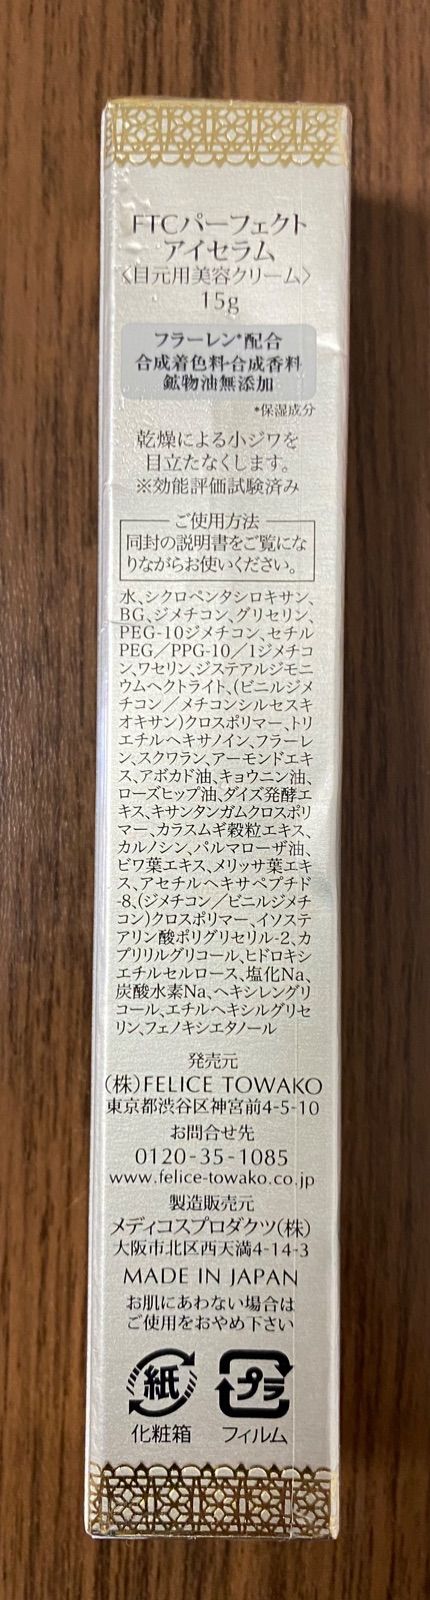 FTCパーフェクト
アイセラム
〈目元用美容クリーム〉
15g
フラーレン*配合
合成着色料・合成香料
鉱物油無添加
*保湿成分
乾燥による小ジワを
目立たなくします。
※効能評価試験済み
ご使用方法
同封の説明書をご覧にな
りながらお使いください。
水、シクロペンタシロキサン、
BG、ジメチコン、グリセリン、
PEG-10ジメチコン、セチル
PEG/PPG-10/1ジメチコ
ン、ワセリン、ジステアルジモニ
ウムヘクトライト、(ビニルジメ
チコン/メチコンシルセスキ
オキサン)クロスポリマー、トリ
エチルヘキサノイン、フラーレ
ン、スクワラン、アーモンドエキ
ス、アボカド油、キョウニン油、
ローズヒップ油、ダイズ発酵エ
キス、キサンタンガムクロスポリ
マー、カラスムギ穀粒エキス、
カルノシン、パルマローザ油、
ビワ葉エキス、メリッサ葉エキ
ス、アセチルヘキサペプチド
-8、(ジメチコン/ビニルジメチ
コン)クロスポリマー、イソステ
アリン酸ポリグリセリル-2、カ
プリリルグリコール、ヒドロキシ
エチルセルロース、塩化Na、
炭酸水素Na、ヘキシレングリ
コール、エチルヘキシルグリセ
リン、フェノキシエタノール
発売元
(株)FELICE TOWAKO
東京都渋谷区神宮前4-5-10
お問合せ先
0120-35-1085
www.felice-towako.co.jp
製造販売元
メディコスプロダクツ(株)
大阪市北区西天満4-14-3
MADE IN JAPAN
お肌にあわない場合は
ご使用をおやめ下さい
紙 プラ
化粧箱 フィルム